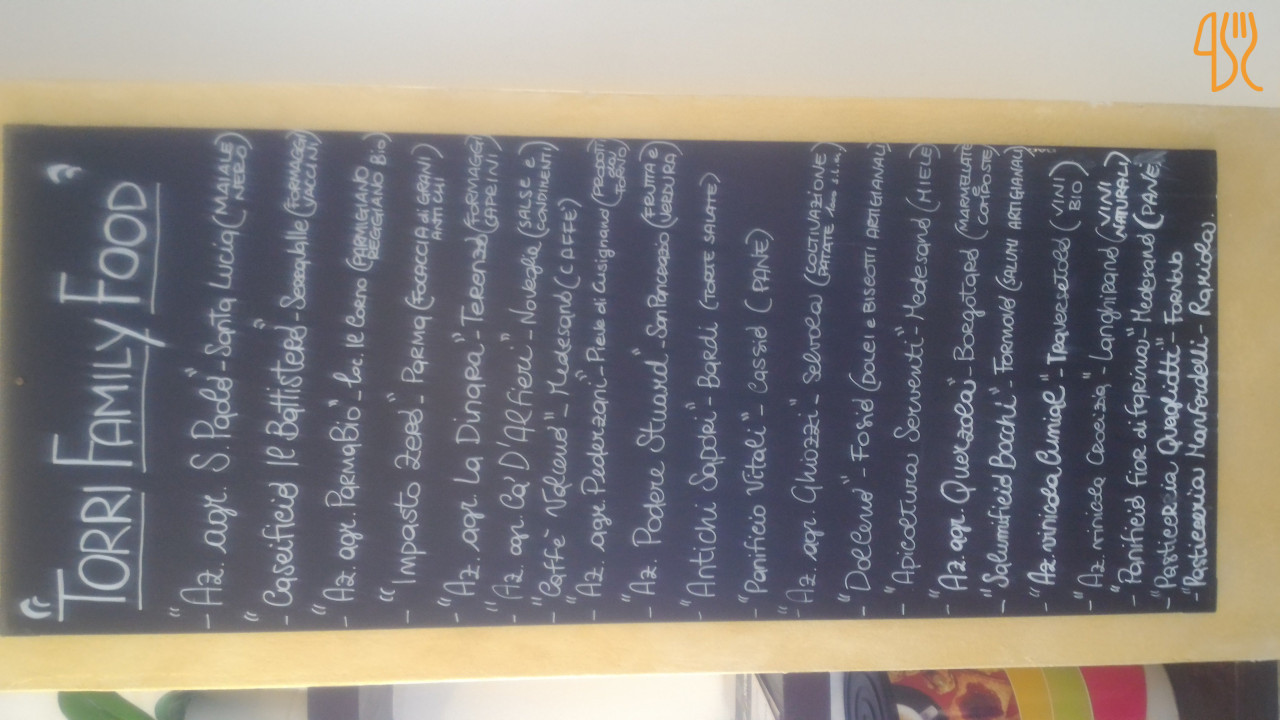 "TORRI FAMILY FOOD"
- "Az. agr. S. Paolo" - Santa Lucia (MAIALE NERO)
- "Caseificio Il Battistero" - Serravalle (FORMAGGI VACCINI)
- "Az. agr. ParmaBio" - Loc. Il Corno (PARMIGIANO REGGIANO Bio)
- "Impasto Zero" - Parma (FOCACCIA di GRANI ANTICHI)
- "Az. agr. La Dinara" - Terenzo (FORMAGGI CAPRINI)
- "Az. agr. Ca' D'Alfieri" - Noveglia (SALSE e CONDIMENTI)
- "Caffè Voltuno" - Medesano (CAFFE)
- "Az. agr. Pederzani" - Pieve di Cusignano (PRODOTTI DEL FORNO)
- "Az. Podere Stuard" - San Pancrazio (FRUTTA e VERDURA)
- "Antichi Sapori" - Bardi (TORTE SALATE)
- "Panificio Vitali" - Cassio (PANE)
- "Az. agr. Ghiozzi" - Selvola (COLTIVAZIONE PATATE
- "Dolceno" - Fosio (DOLCI e BISCOTTI ARTIGIANALI)
- "Apicoltura Serventi" - Medesano (MIELE)
- "Az agr. Querzola" - Borgotaro (MARMELLATE e COMPOSTE)
- "Salumificio Bocchi" - Fornovo (SALUMI ARTIGIANALI)
- "Az. vinicola Cumigl" - Traversetolo (VINI BIO)
- "Az. vinicola Crocizia" - Langhirano (VINI NATURALI)
- "Panificio Fior di Farina" - Medesano (PANE)
- "Pasticceria Quagliotti" - Fornovo
- "Pasticceria Manfredelli - Ramiola.